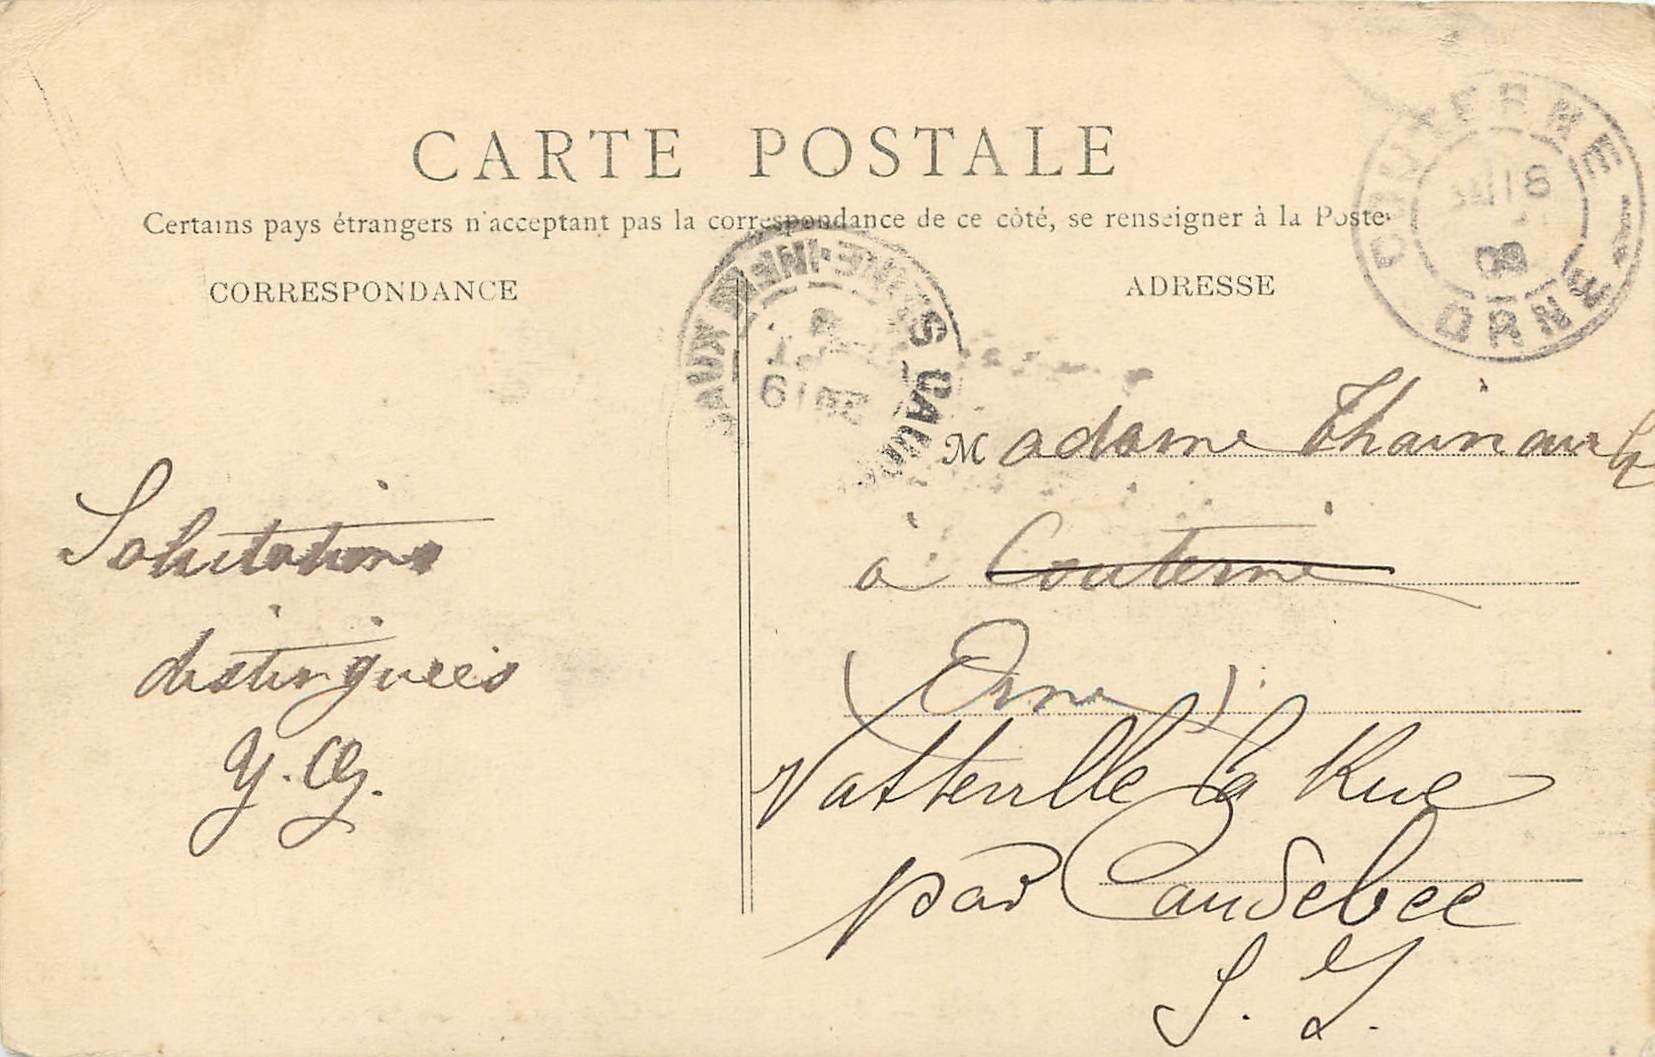 CARTE POSTALE
Certains pays étrangers n'acceptant pas la correspondance de ce côté, se renseigner à la Poste
CORRESPONDANCE
ADRESSE
COUTERNE ORNE
18
09
SEINE-INFRE
Salutations
distinguées
Y. G.
Madame
à Couterne
(Orne)
Vatteville la Rue
par Caudebec
S. I.